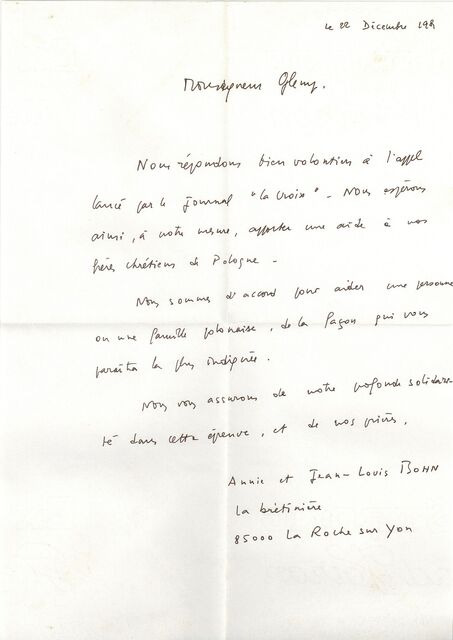 Le 22 Décembre 198
Monseigneur Glemp,
Nous répondons bien volontiers à l'appel
lancé par le journal "la Croix" - Nous espérons
ainsi, à notre mesure, apporter une aide à nos
frères chrétiens de Pologne -
Nous sommes d'accord pour aider une personne
ou une famille polonaise, de la façon qui vous
paraîtra la plus indiquée.
Nous vous assurons de notre profonde solidari-
té dans cette épreuve, et de nos prières,
Annie et Jean-Louis BOHN
La brétinière
85000 La Roche sur Yon